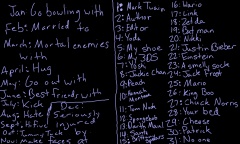 Jan Go bowling with
Feb: Married to
March: Mortal enemies
with
April: Hug
May: Go out with
June: Best friends with
July: Kick
Dec:
Aug: Hate
Seriously
Sept: Kill
injured
Oct: Jump
by
Nov: Make faces at
1: Mark Twain
2: Author
3: Editor
4: Yoda
5: My shoe
6: My 3DS
7: Yoshi
8: Jackie Chan
9: Peach
10: Mario
11: Tom Nook
12: Spongebob
15: Brittney Spears
16: Wario
17: Link
18: Zelda
19: Batman
20: Nikki
21: Justin Bieber
22: Einstein
23: A gmod sock
24: Jack Frost
25: Mario
26: King Boo
27: Chuck Norris
28: Your bed
29: Cheese
30: Patrick
31: No one